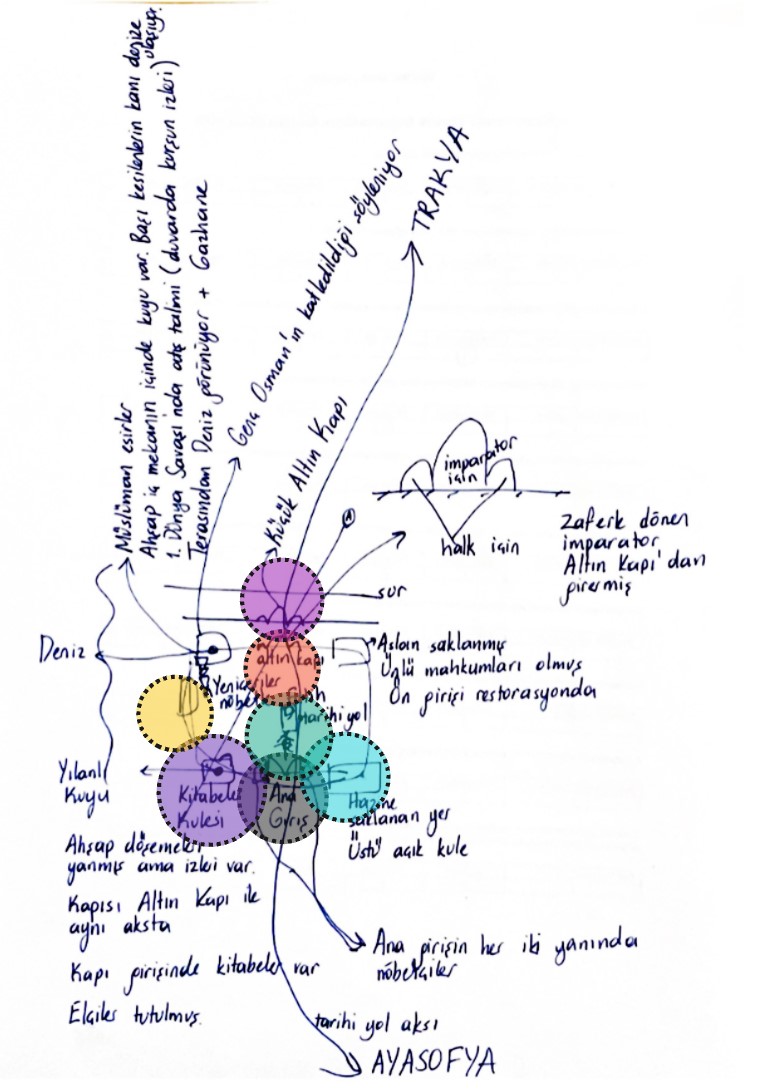 Müslüman esirler
Ahşap iç mekanın içinde kuyu var. Başı kesilenlerin kanı denize ulaşıyor.
1. Dünya Savaşı'nda atış talimi (duvarda kurşun izleri)
Terasından Deniz görünüyor + Gazhane
Genç Osman'ın katledildiği söyleniyor
Küçük Altın Kapı
TRAKYA
A
imparator
için
halk için
Zaferle dönen
imparator
Altın Kapı'dan
girermiş
sur
Deniz
altın kapı
Aslan saklanmış
Ünlü mahkumları olmuş
Ön girişi restorasyonda
tarihi yol
Yılanlı
Kuyu
Kitabeler
Kulesi
Ana
Giriş
Hazine
saklanan yer
Üstü açık kule
Ahşap döşemeler
yanmış ama izleri var.
Kapısı Altın Kapı ile
aynı aksta
Kapı girişinde kitabeler var
Elçiler tutulmuş.
Ana girişin her iki yanında
nöbetçiler
tarihi yol aksı
AYASOFYA